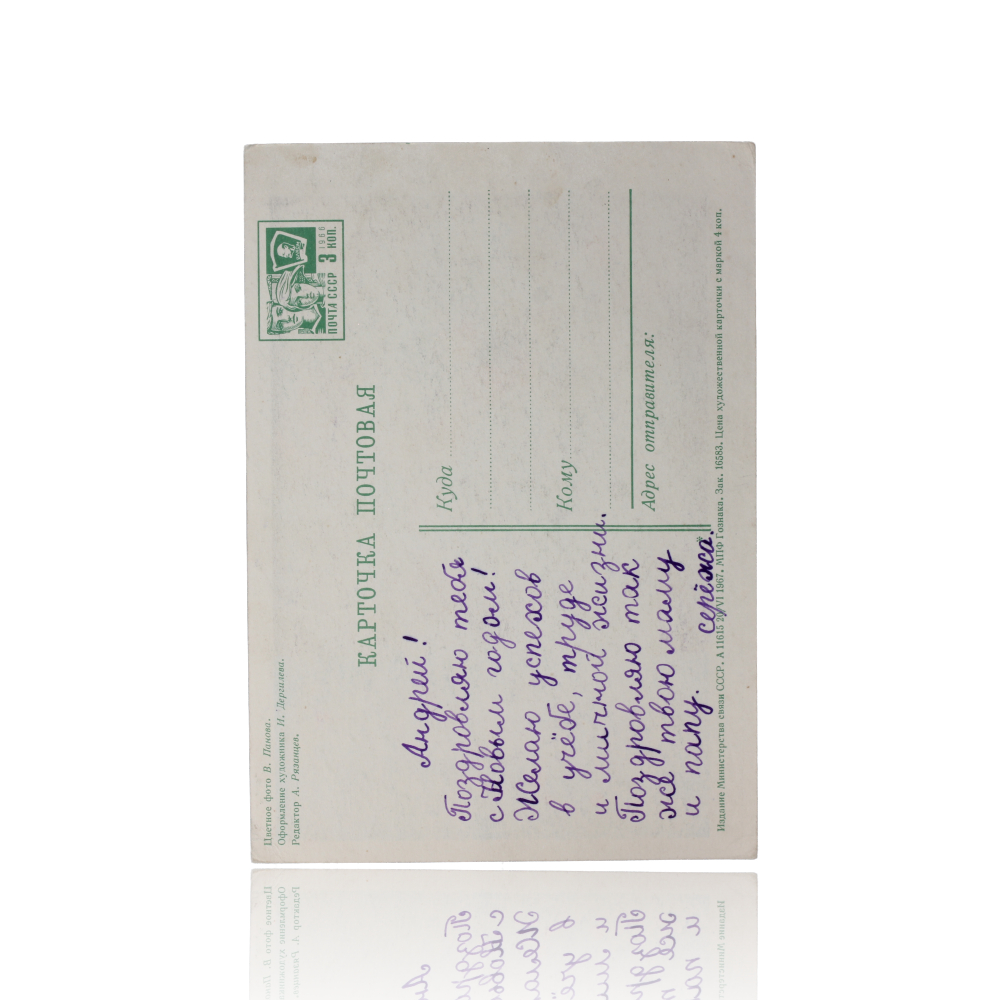 Цветное фото В. Панова.
Оформление художника Н. Дергилева.
Редактор А. Рязанцев.
ПОЧТА СССР
1966
3 КОП.
КАРТОЧКА ПОЧТОВАЯ
Андрей!
Поздровляю тебя
с Новым годом!
Желаю успехов
в учёбе, труде
и личной жизни.
Поздровляю так
же твою маму
и папу.
серёжа.
Куда
Кому
Адрес отправителя:
Издание Министерства связи СССР. А 11615 20/VI 1967. МПФ Гознака. Зак. 16583. Цена художественной карточки с маркой 4 коп.